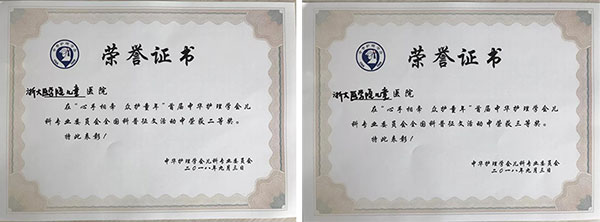 荣誉证书
浙大医学院儿童医院
在“心手相牵 众护童年”首届中华护理学会儿
科专业委员会全国科普征文活动中荣获二等奖。
特此表彰！
中华护理学会儿科专业委员会
二〇一八年九月三日
荣誉证书
浙大医学院儿童医院
在“心手相牵 众护童年”首届中华护理学会儿
科专业委员会全国科普征文活动中荣获三等奖。
特此表彰！
中华护理学会儿科专业委员会
二〇一八年九月三日